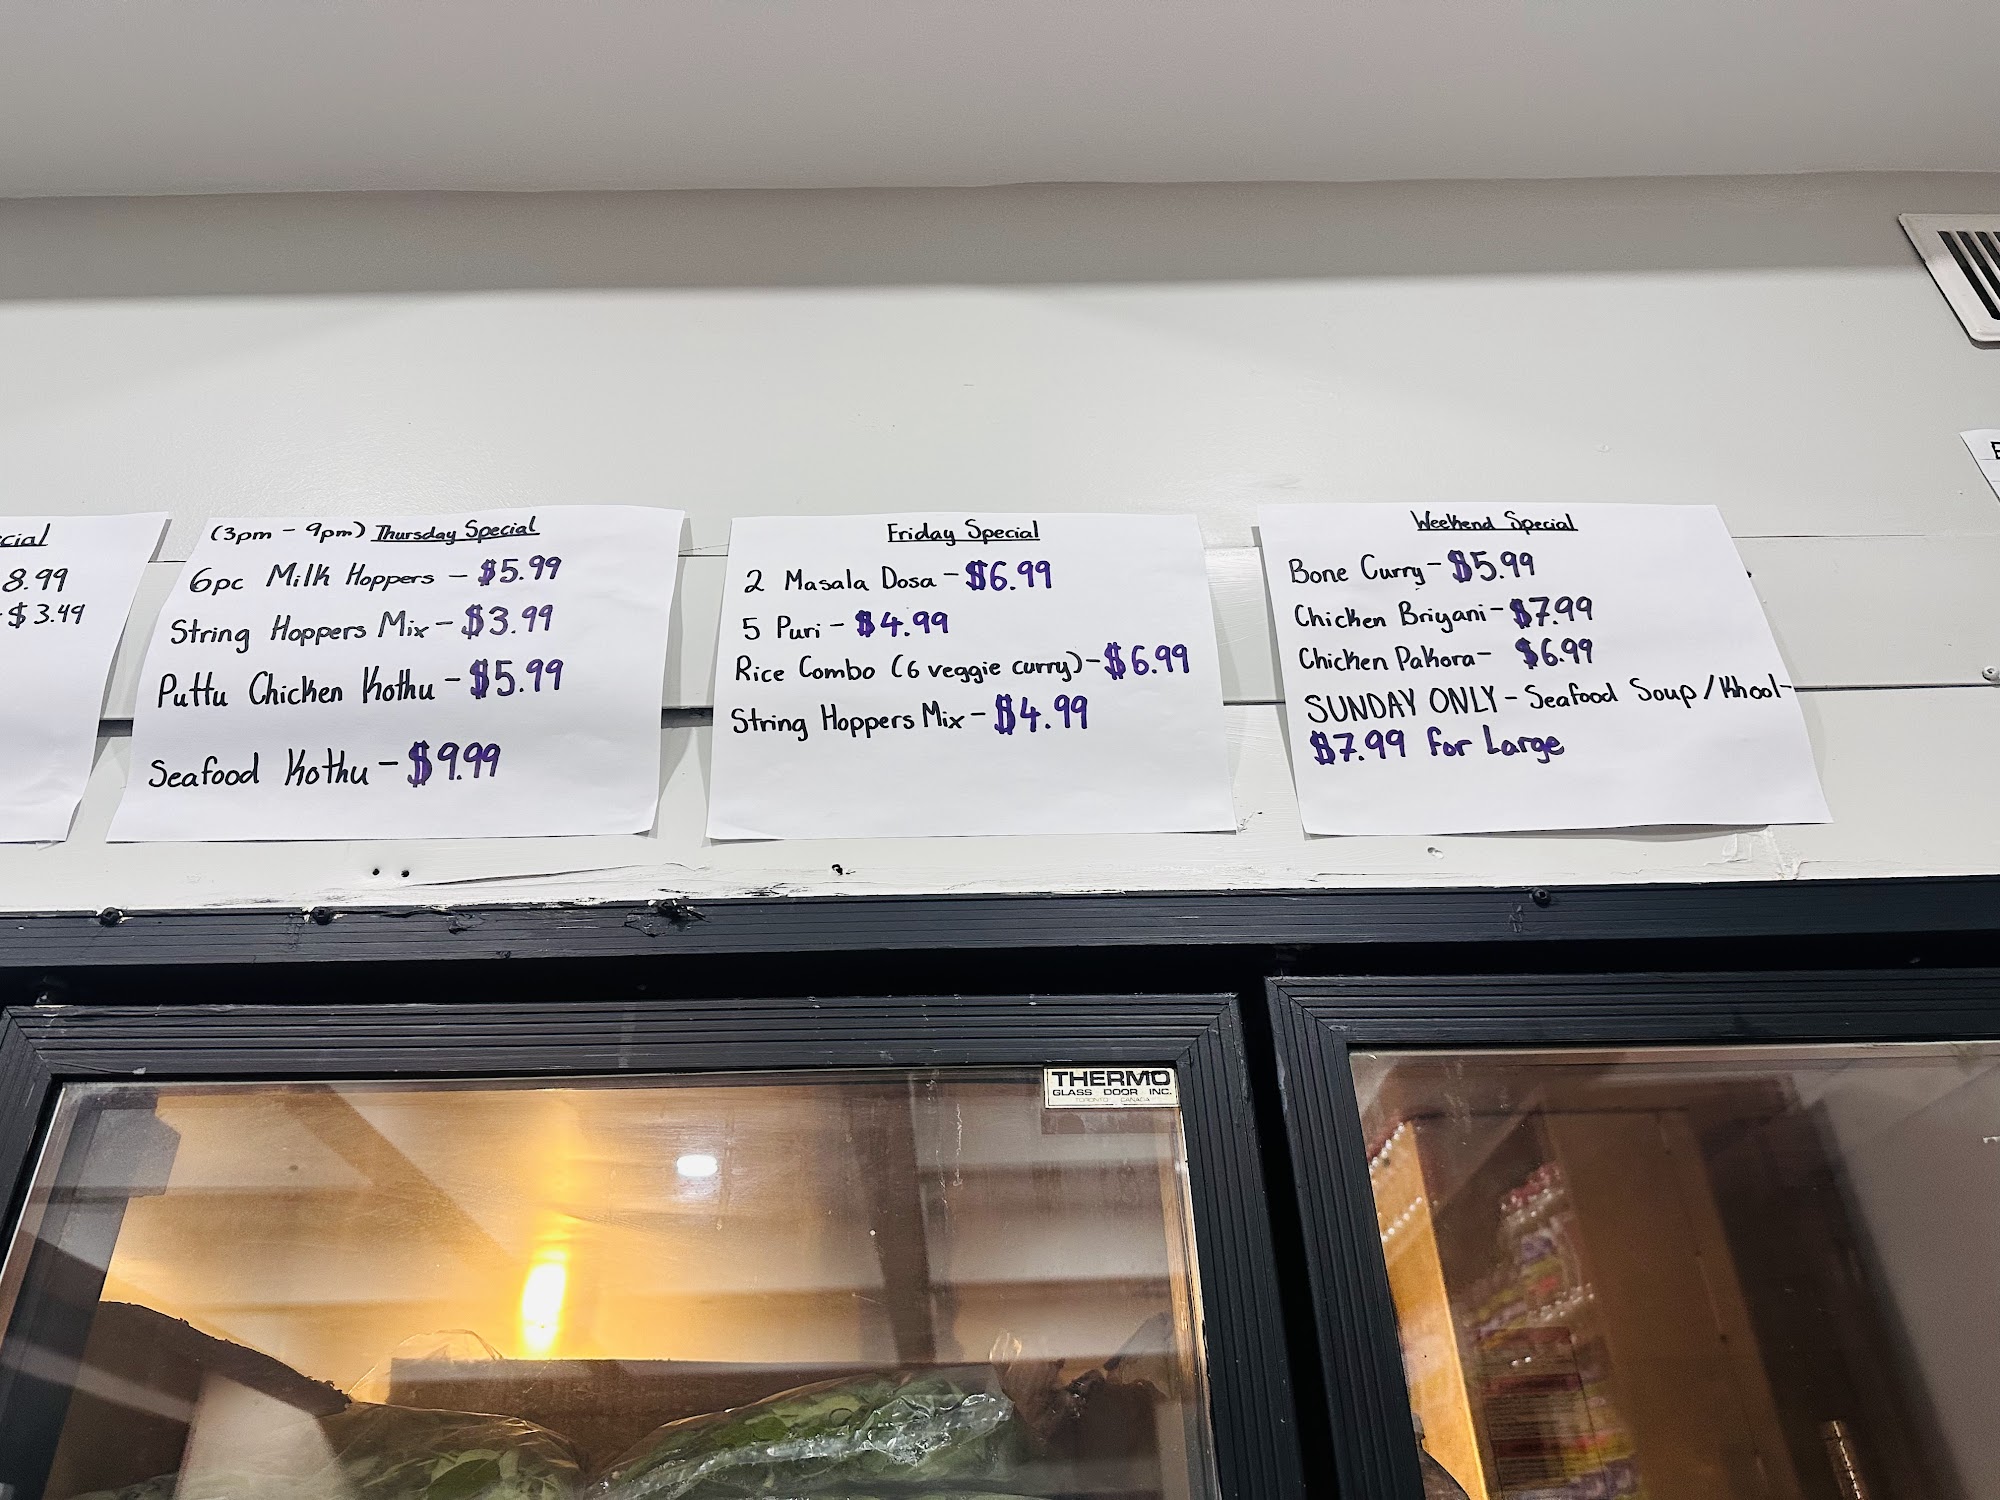 cial
8.99
- $3.49
(3pm - 9pm) Thursday Special
6pc Milk Hoppers - $5.99
String Hoppers Mix - $3.99
Puttu Chicken Kothu - $5.99
Seafood Kothu - $9.99
Friday Special
2 Masala Dosa - $6.99
5 Puri - $4.99
Rice Combo (6 veggie curry) - $6.99
String Hoppers Mix - $4.99
Weekend Special
Bone Curry - $5.99
Chicken Briyani - $7.99
Chicken Pakora - $6.99
SUNDAY ONLY - Seafood Soup / Khool -
$7.99 for Large
E
THERMO
GLASS DOOR INC.
TORONTO CANADA